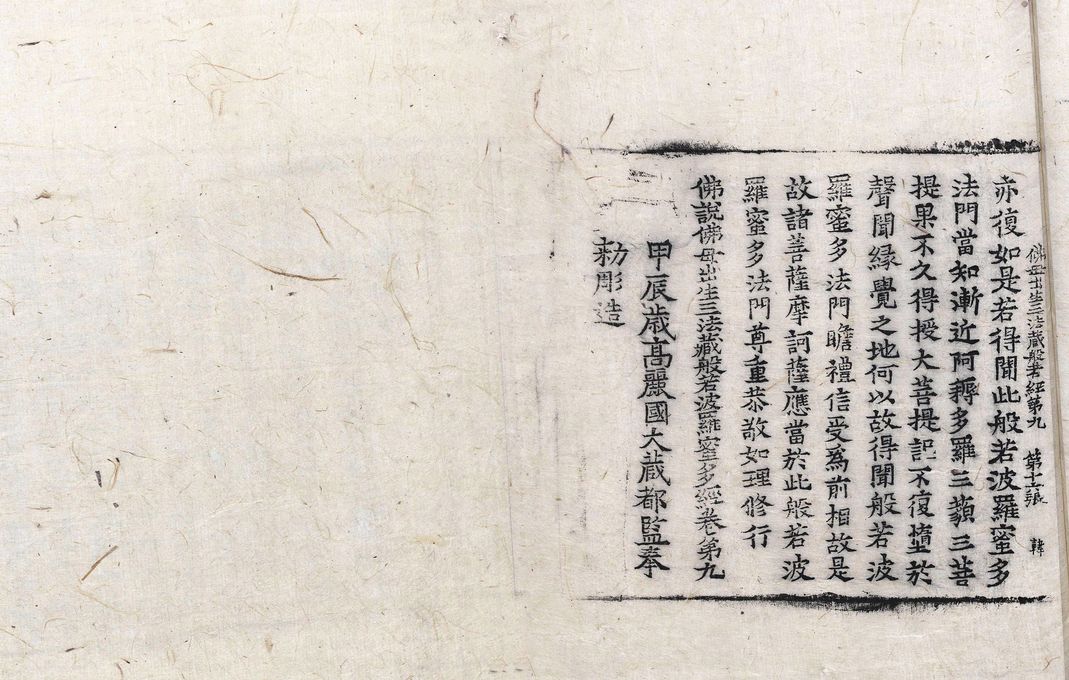 佛母出生三法藏般若經第九 第十二張 韓
亦復如是若得聞此般若波羅蜜多
法門當知漸近阿耨多羅三藐三菩
提果不久得授大菩提記不復墮於
聲聞緣覺之地何以故得聞般若波
羅蜜多法門瞻禮信受爲前相故是
故諸菩薩摩訶薩應當於此般若波
羅蜜多法門尊重恭敬如理修行
佛說佛母出生三法藏般若波羅蜜多經卷第九
甲辰歲高麗國大藏都監奉
勑彫造